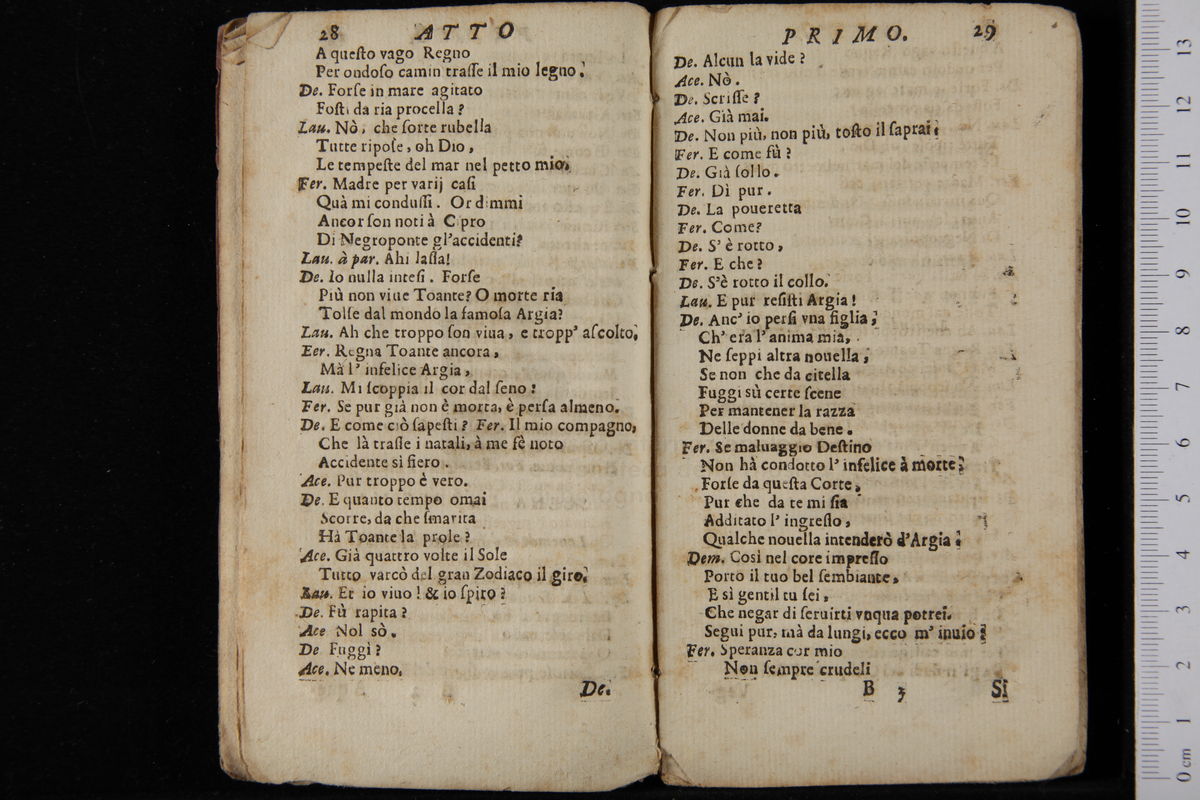 28 ATTO
A queſto vago Regno
Per ondoſo camin traſſe il mio legno.
De. Forſe in mare agitato
Foſti da ria procella?
Lau. Nò, che ſorte rubella
Tutte ripoſe, oh Dio,
Le tempeſte del mar nel petto mio.
Fer. Madre per varij caſi
Quà mi conduſſi. Or dimmi
Ancor ſon noti à Cipro
Di Negroponte gl'accidenti?
Lau. à par. Ahi laſſa!
De. Io nulla inteſi. Forſe
Più non viue Toante? O morte ria
Tolſe dal mondo la famoſa Argia?
Lau. Ah che troppo ſon viua, e tropp' aſcolto.
Eer. Regna Toante ancora,
Mà l' infelice Argia,
Lau. Mi ſcoppia il cor dal ſeno!
Fer. Se pur già non è morta, è perſa almeno.
De. E come ciò ſapeſti? Fer. Il mio compagno,
Che là traſſe i natali, à me fè noto
Accidente sì fiero.
Ace. Pur troppo è vero.
De. E quanto tempo omai
Scorre, da che ſmarita
Hà Toante la prole?
Ace. Già quattro volte il Sole
Tutto varcò del gran Zodiaco il giro.
Lau. Et io viuo! & io ſpiro?
De. Fù rapita?
Ace Nol sò.
De Fuggì?
Ace. Ne meno.
De.
PRIMO. 29
De. Alcun la vide?
Ace. Nò.
De. Scriſſe?
Ace. Già mai.
De. Non più, non più, toſto il ſaprai.
Fer. E come fù?
De. Già ſollo.
Fer. Dì pur.
De. La poueretta
Fer. Come?
De. S' è rotto,
Fer. E che?
De. S'è rotto il collo.
Lau. E pur reſiſti Argia!
De. Anc' io perſi vna figlia,
Ch' era l' anima mia,
Ne ſeppi altra nouella,
Se non che da citella
Fuggì sù certe ſcene
Per mantener la razza
Delle donne da bene.
Fer. Se maluaggio Deſtino
Non hà condotto l' infelice à morte,
Forſe da queſta Corte,
Pur che da te mi ſia
Additato l' ingreſſo,
Qualche nouella intenderò d'Argia.
Dem. Così nel core impreſſo
Porto il tuo bel ſembiante,
E sì gentil tu ſei,
Che negar di ſeruirti vnqua potrei.
Segui pur, mà da lungi, ecco m' inuio.
Fer. Speranza cor mio
Non ſempre crudeli
B 3 Si